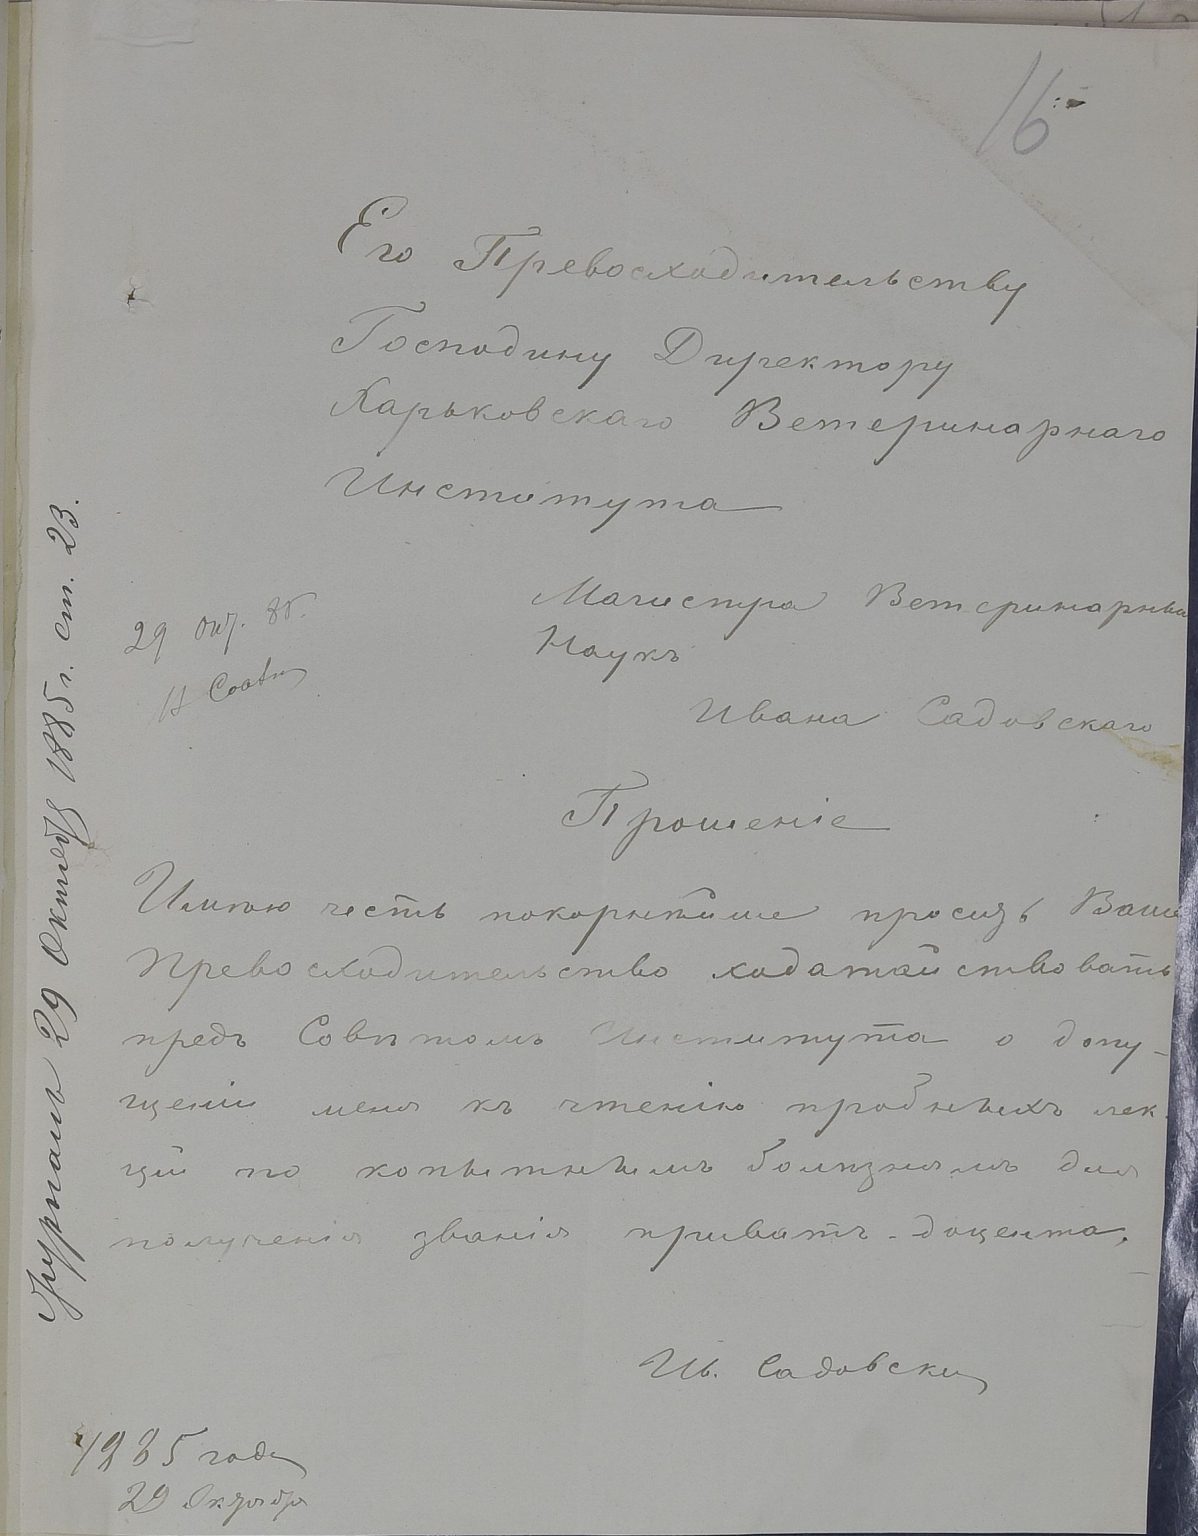 16
Его Превосходительству
Господину Директору
Харьковскаго Ветеринарнаго
Института
Магистра Ветеринарных
Наукъ
Ивана Садовскаго
29 окт. 85.
В Совѣт
Прошеніе
Имѣю честь покорнѣйше просить Ваше
Превосходительство ходатайствовать
предъ Совѣтомъ Института о допу-
щеніи меня къ чтенію пробныхъ лек-
цій по копытнымъ болѣзнямъ для
полученія званія приватъ-доцента.
Ив. Садовскій
1885 года
29 Октября
Журналъ 29 Октября 1885 г. ст. 23.